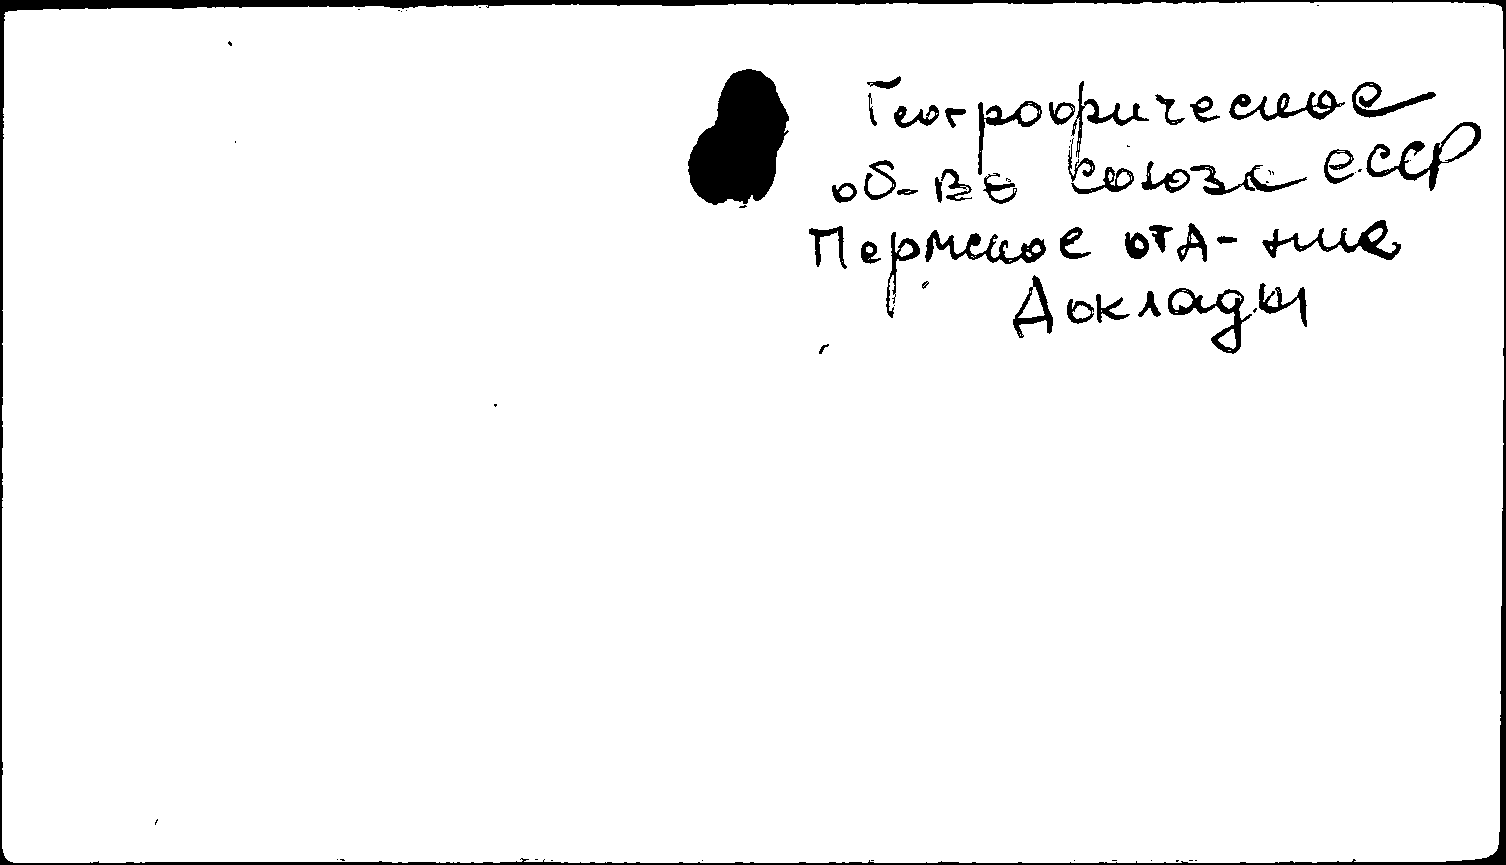 Географическое
об-во Союза СССР
Пермское отд-ние
Доклады